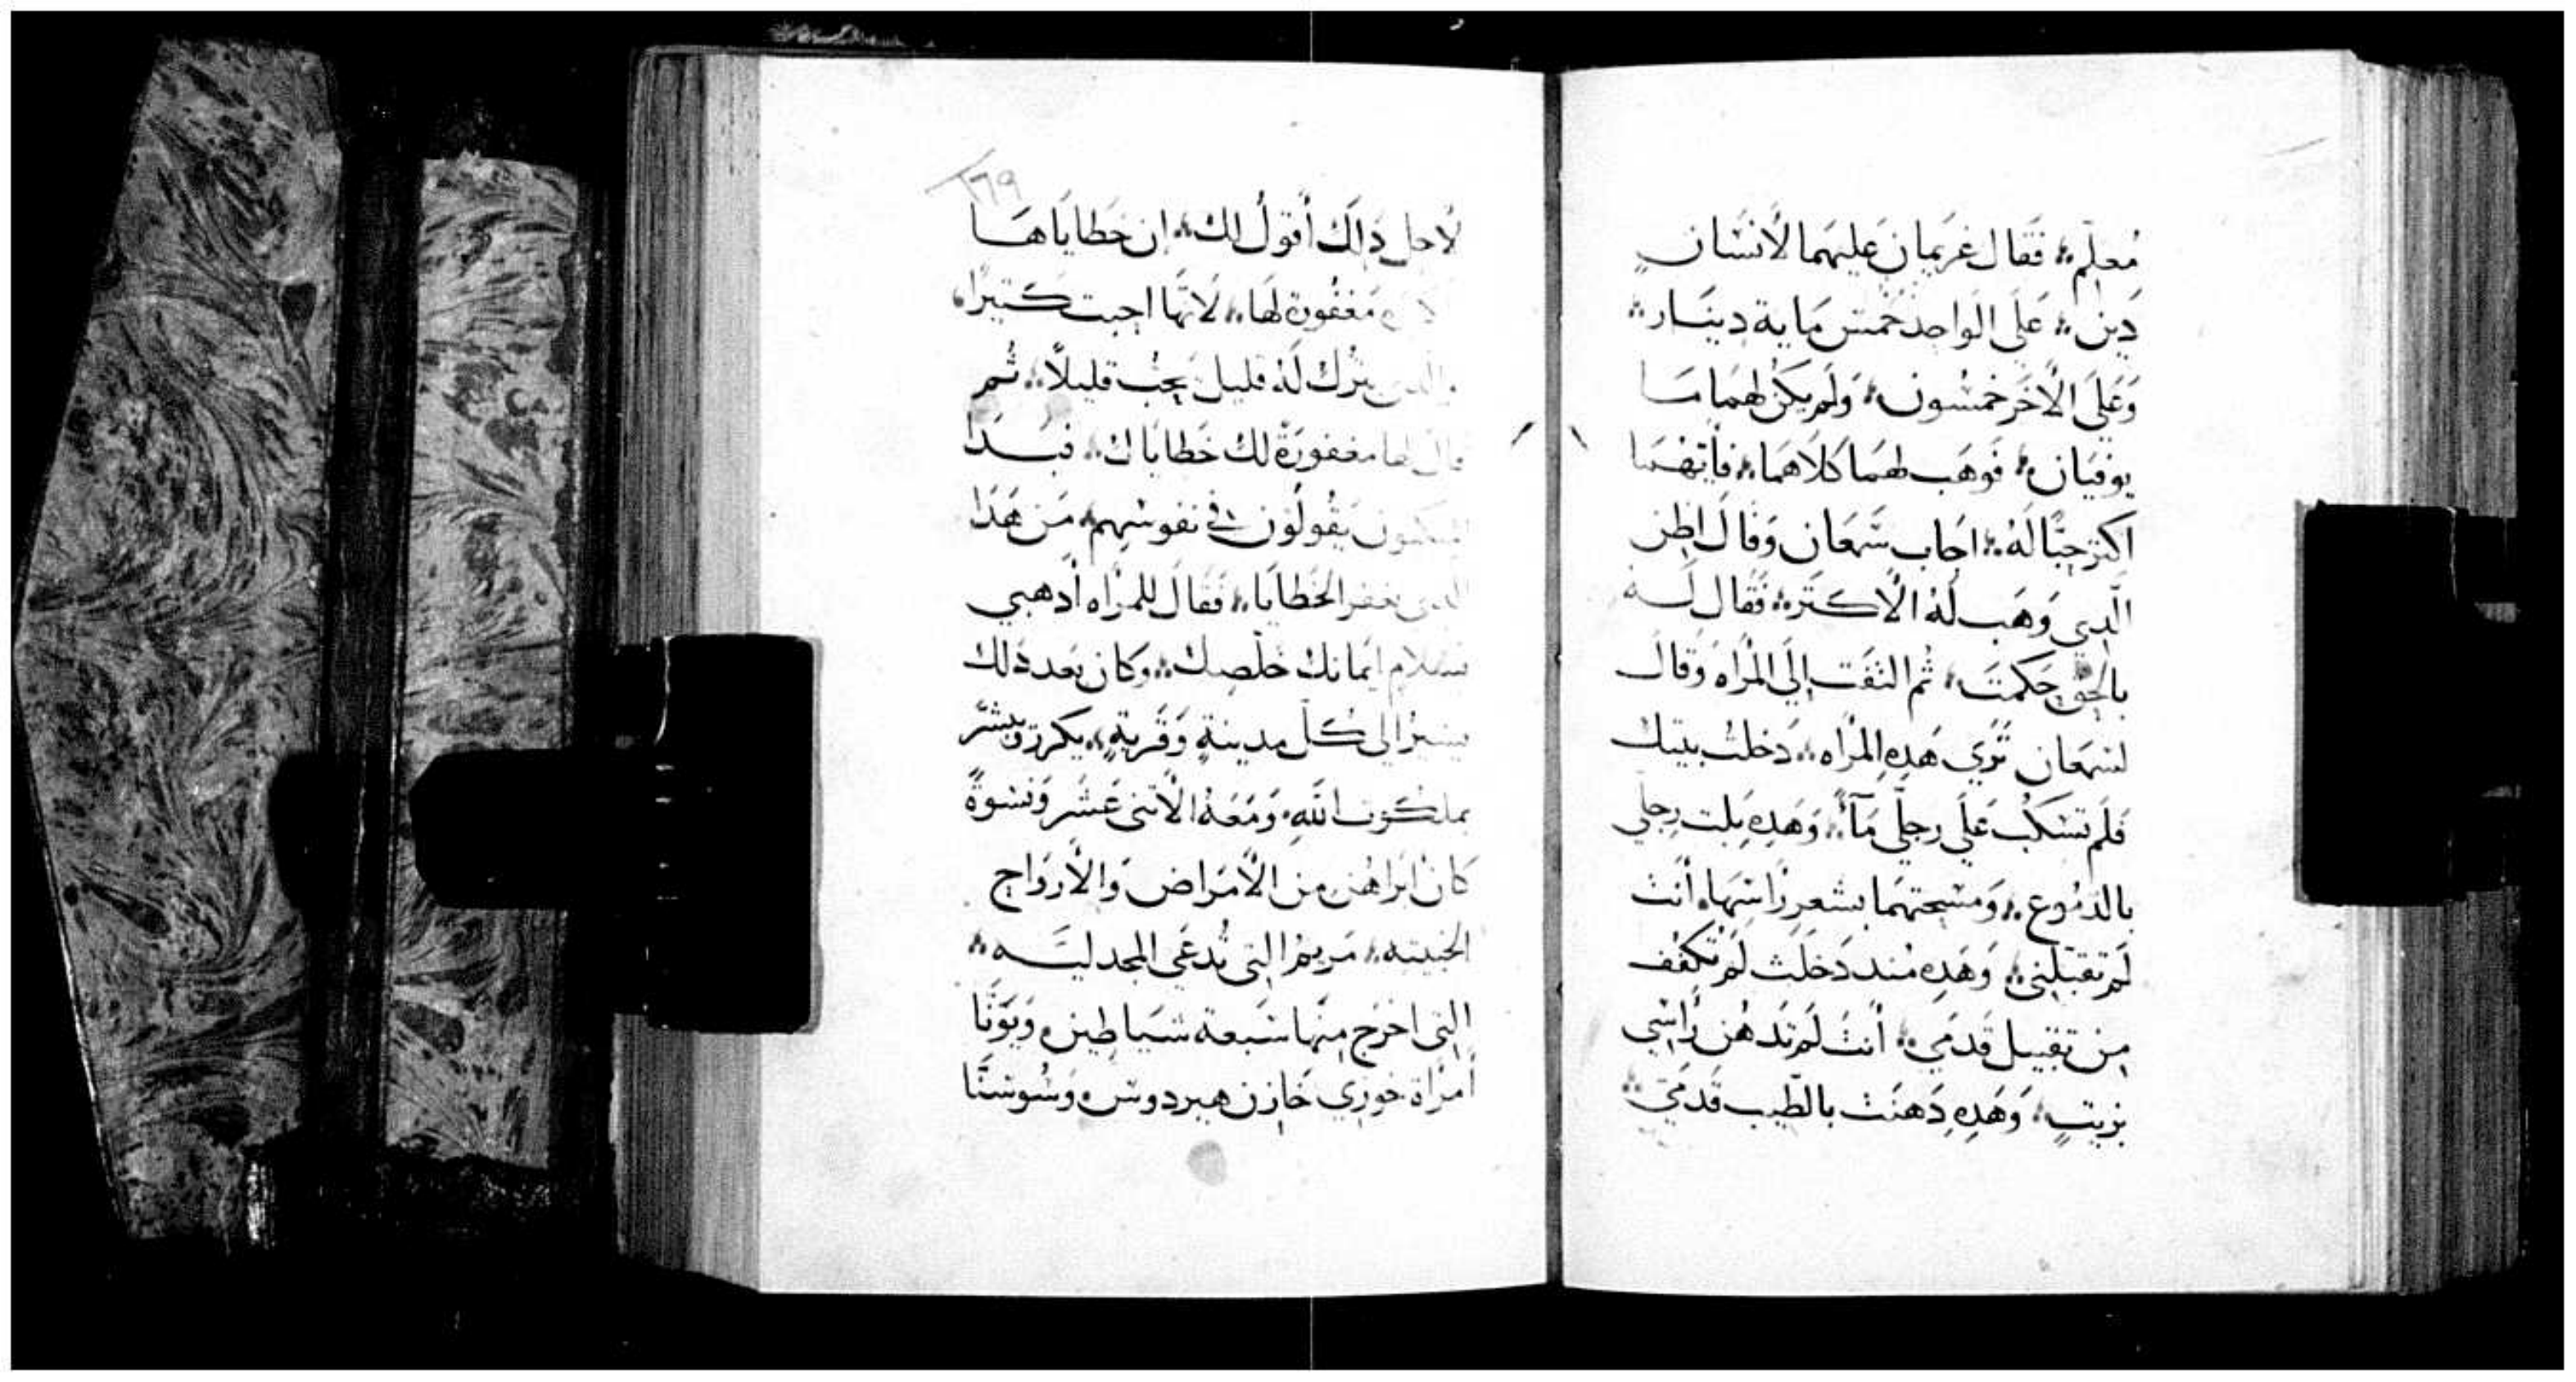 مُعلم؛ فَقَال غَريمان عَليهما لأنسَان
دَين؛ عَلى الواحد خمس مَاية دينَار؛
وَعَلى الأخَر خمسُون؛ وَلَم يكن لهمَا مَا
يوفيَان؛ فَوهَب لهمَا كلاهمَا؛ فايهمَا
اكتر حبًا لَهُ؛ اجَاب سَمعَان وَقالَ اظن
الَّدِي وَهَب لهُ الأكتَر؛ فَقَال لَه
بالحق حَكمتَ؛ ثم التفَت إلَي المرأه وَقالَ
لسمعَان تَرَي هَدِه المرأه؛ دَخلتُ بيتك
فلَم تسكب عَلَي رجليَّ مَآءً؛ وَهَدِه بَلت رجليَّ
بالدمُوع؛ وَمسحتهمَا بشعر رَاسهَا؛ أنتَ
لَم تقبّلني؛ وَهَدِه مُند دَخلتُ لَم تكفف
مِن تقبيل قدمَي؛ أنتَ لَم تدهُن رَاسي
بزيتٍ؛ وَهَدِه دَهنَت بالطّيب قدمَيَّ؛
١٦٩
لأجل دَالك أقولُ لك؛ ان خطايَاهَا
مَغفُورة لهَا؛ لأنهَا احبت كتيرًا؛
والدي يترُك لَهُ قليل يحبُ قليلاً؛ ثُم
قال لها مغفورَة لك خطايَاك؛ فبَدَا
المتكيون يَقُولون في نفوسهم؛ مَن هَدَا
الدي يغفر الخَطايَا؛ فَقَالَ للمرأه أدهبي
بسلام إيمَانك خلّصك؛ وَكان بَعد دَلك
يسيرُ الي كُل مدينةٍ وَقَريةٍ؛ يكرز وَيبشّر
بملكوت الله؛ وَمَعَهُ الأتني عَشر وَنسوةً
كانَ ابرَاهُن من الأمرَاض وَالأروَاح
الخبيته؛ مَريمُ التي تُدعَى المجدليَّه؛
التي اخرَج منهَا سَبعة شيَاطين؛ وَيوَنَّا
أمرَاة خوزي خَازن هيردوس؛ وَسُوسنَّا